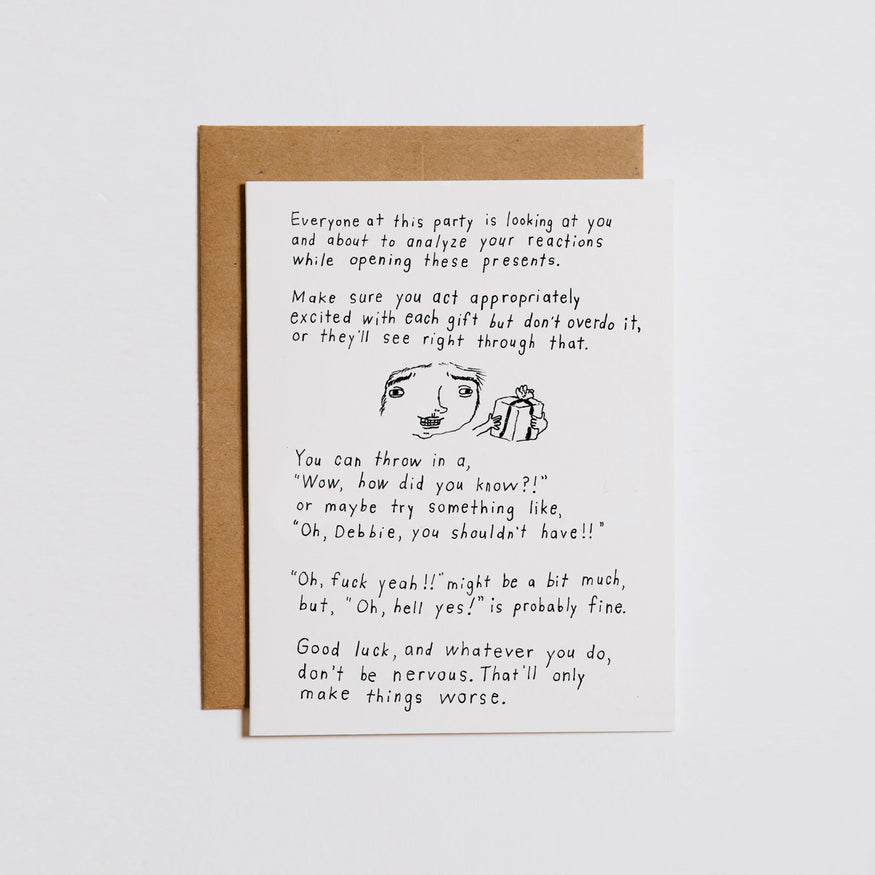 Everyone at this party is looking at you
and about to analyze your reactions
while opening these presents.
Make sure you act appropriately
excited with each gift but don't overdo it,
or they'll see right through that.
You can throw in a,
"Wow, how did you know?!"
or maybe try something like,
"Oh, Debbie, you shouldn't have!!"
"Oh, fuck yeah!!" might be a bit much,
but, "Oh, hell yes!" is probably fine.
Good luck, and whatever you do,
don't be nervous. That'll only
make things worse.